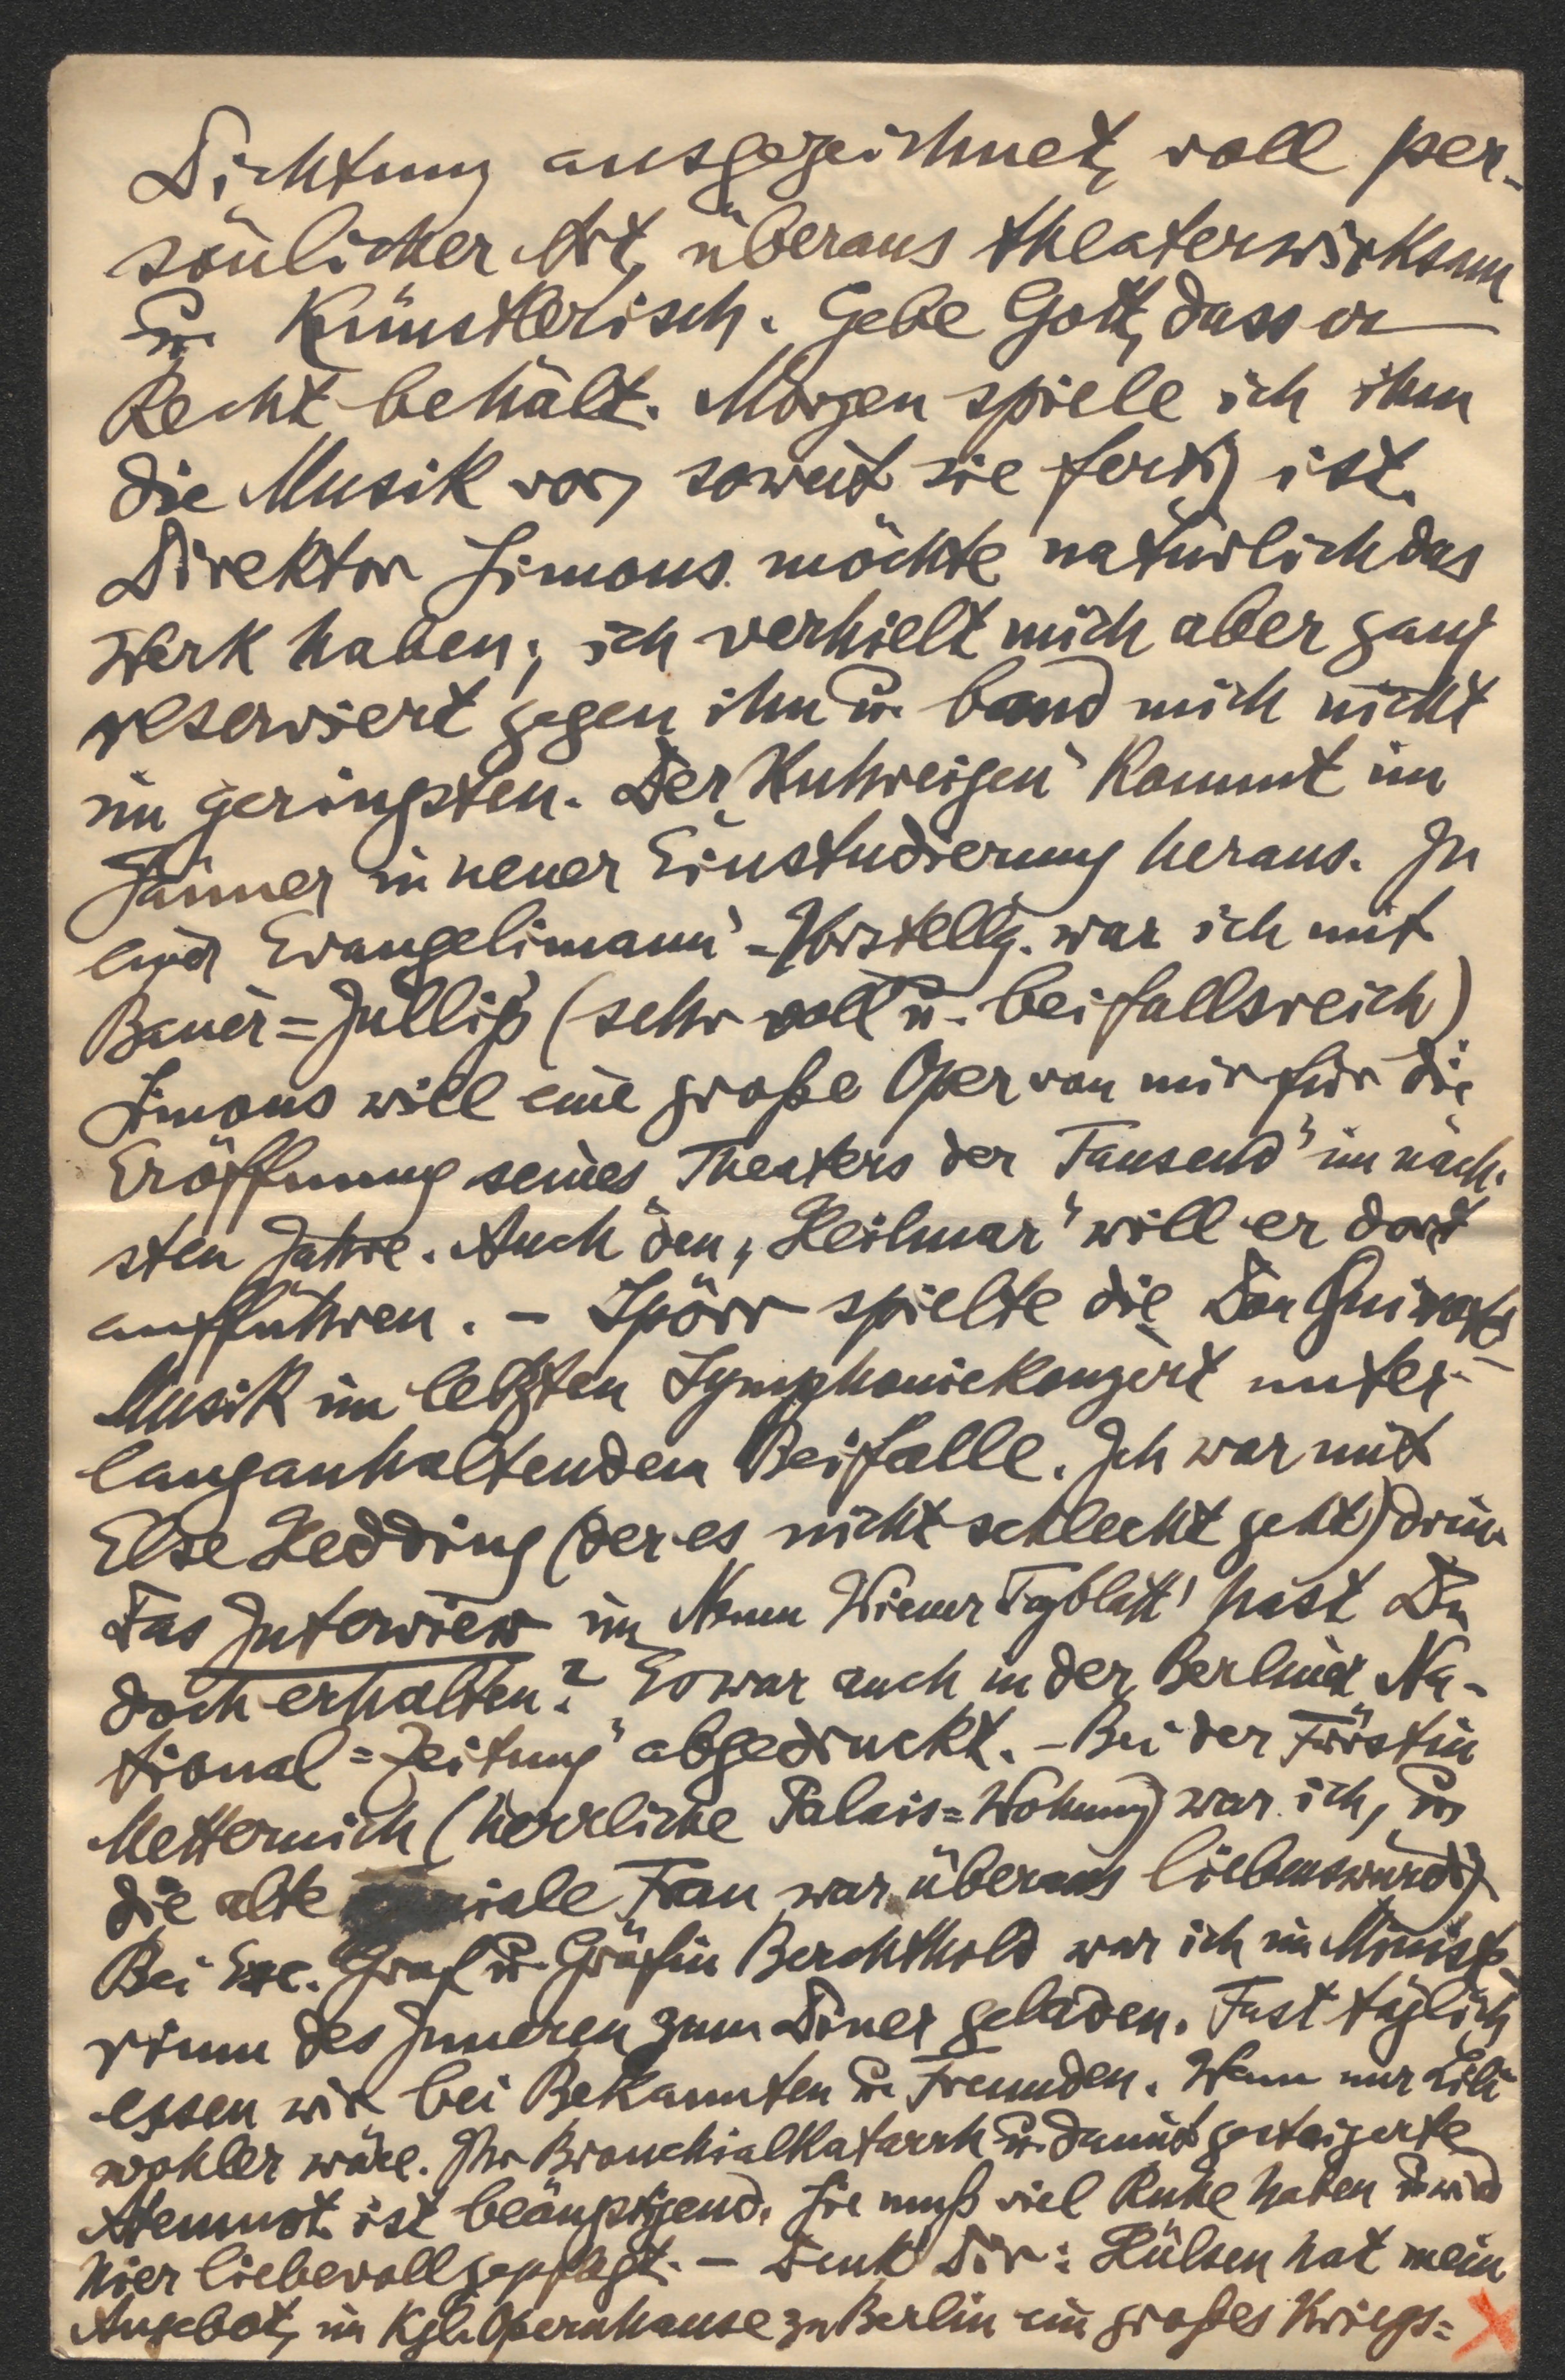 Dichtung ausgezeichnet, voll per-
sönlicher Art, überaus theaterwirksam
u. künstlerisch. Gebe Gott, dass er
Recht behält. Morgen spiele ich ihm
die Musik vor, soweit sie fertig ist.
Direktor Simons möchte natürlich das
Werk haben; ich verhielt mich aber ganz
reserviert gegen ihn u. band mich nicht
im geringsten. Der „Kuhreigen" kommt im
Jänner in neuer Einstudierung heraus. In
einer „Evangelimann"-Vorstellg. war ich mit
Bauer=Jullig (sehr voll u. beifallsreich)
Simons will eine große Oper von mir für die
Eröffnung seines „Theaters der Tausend" im näch-
sten Jahre. Auch den „Heilmar" will er dort
aufführen. – Spörr spielte die Don Quixote
Musik im letzten Symphoniekonzert unter
langanhaltendem Beifalle. Ich war mit
Else Hedding (der es nicht schlecht geht) drin.
Das Interview im „Neuen Wiener Tagblatt" hast Du
doch erhalten? Es war auch in der „Berliner Na-
tional=Zeitung" abgedruckt. – Bei der Fürstin
Metternich (herrliche Palais=Wohnung) war ich, u.
die alte Frau war überaus liebenswürdig
Bei Exc. Graf u. Gräfin Berchthold war ich im Ministe-
rium des Inneren zum Diner geladen. Fast täglich
essen wir bei Bekannten u. Freunden. Wenn nur Lili
wohler wäre. Ihr Bronchialkatarrh u. damit gesteigerte
Atemnot ist beängstigend. Sie muß viel Ruhe haben u. wird
hier liebevoll gepflegt. – Denk' Dir: Hülsen hat mein
Angebot, im Kgl. Opernhause zu Berlin ein großes Kriegs=